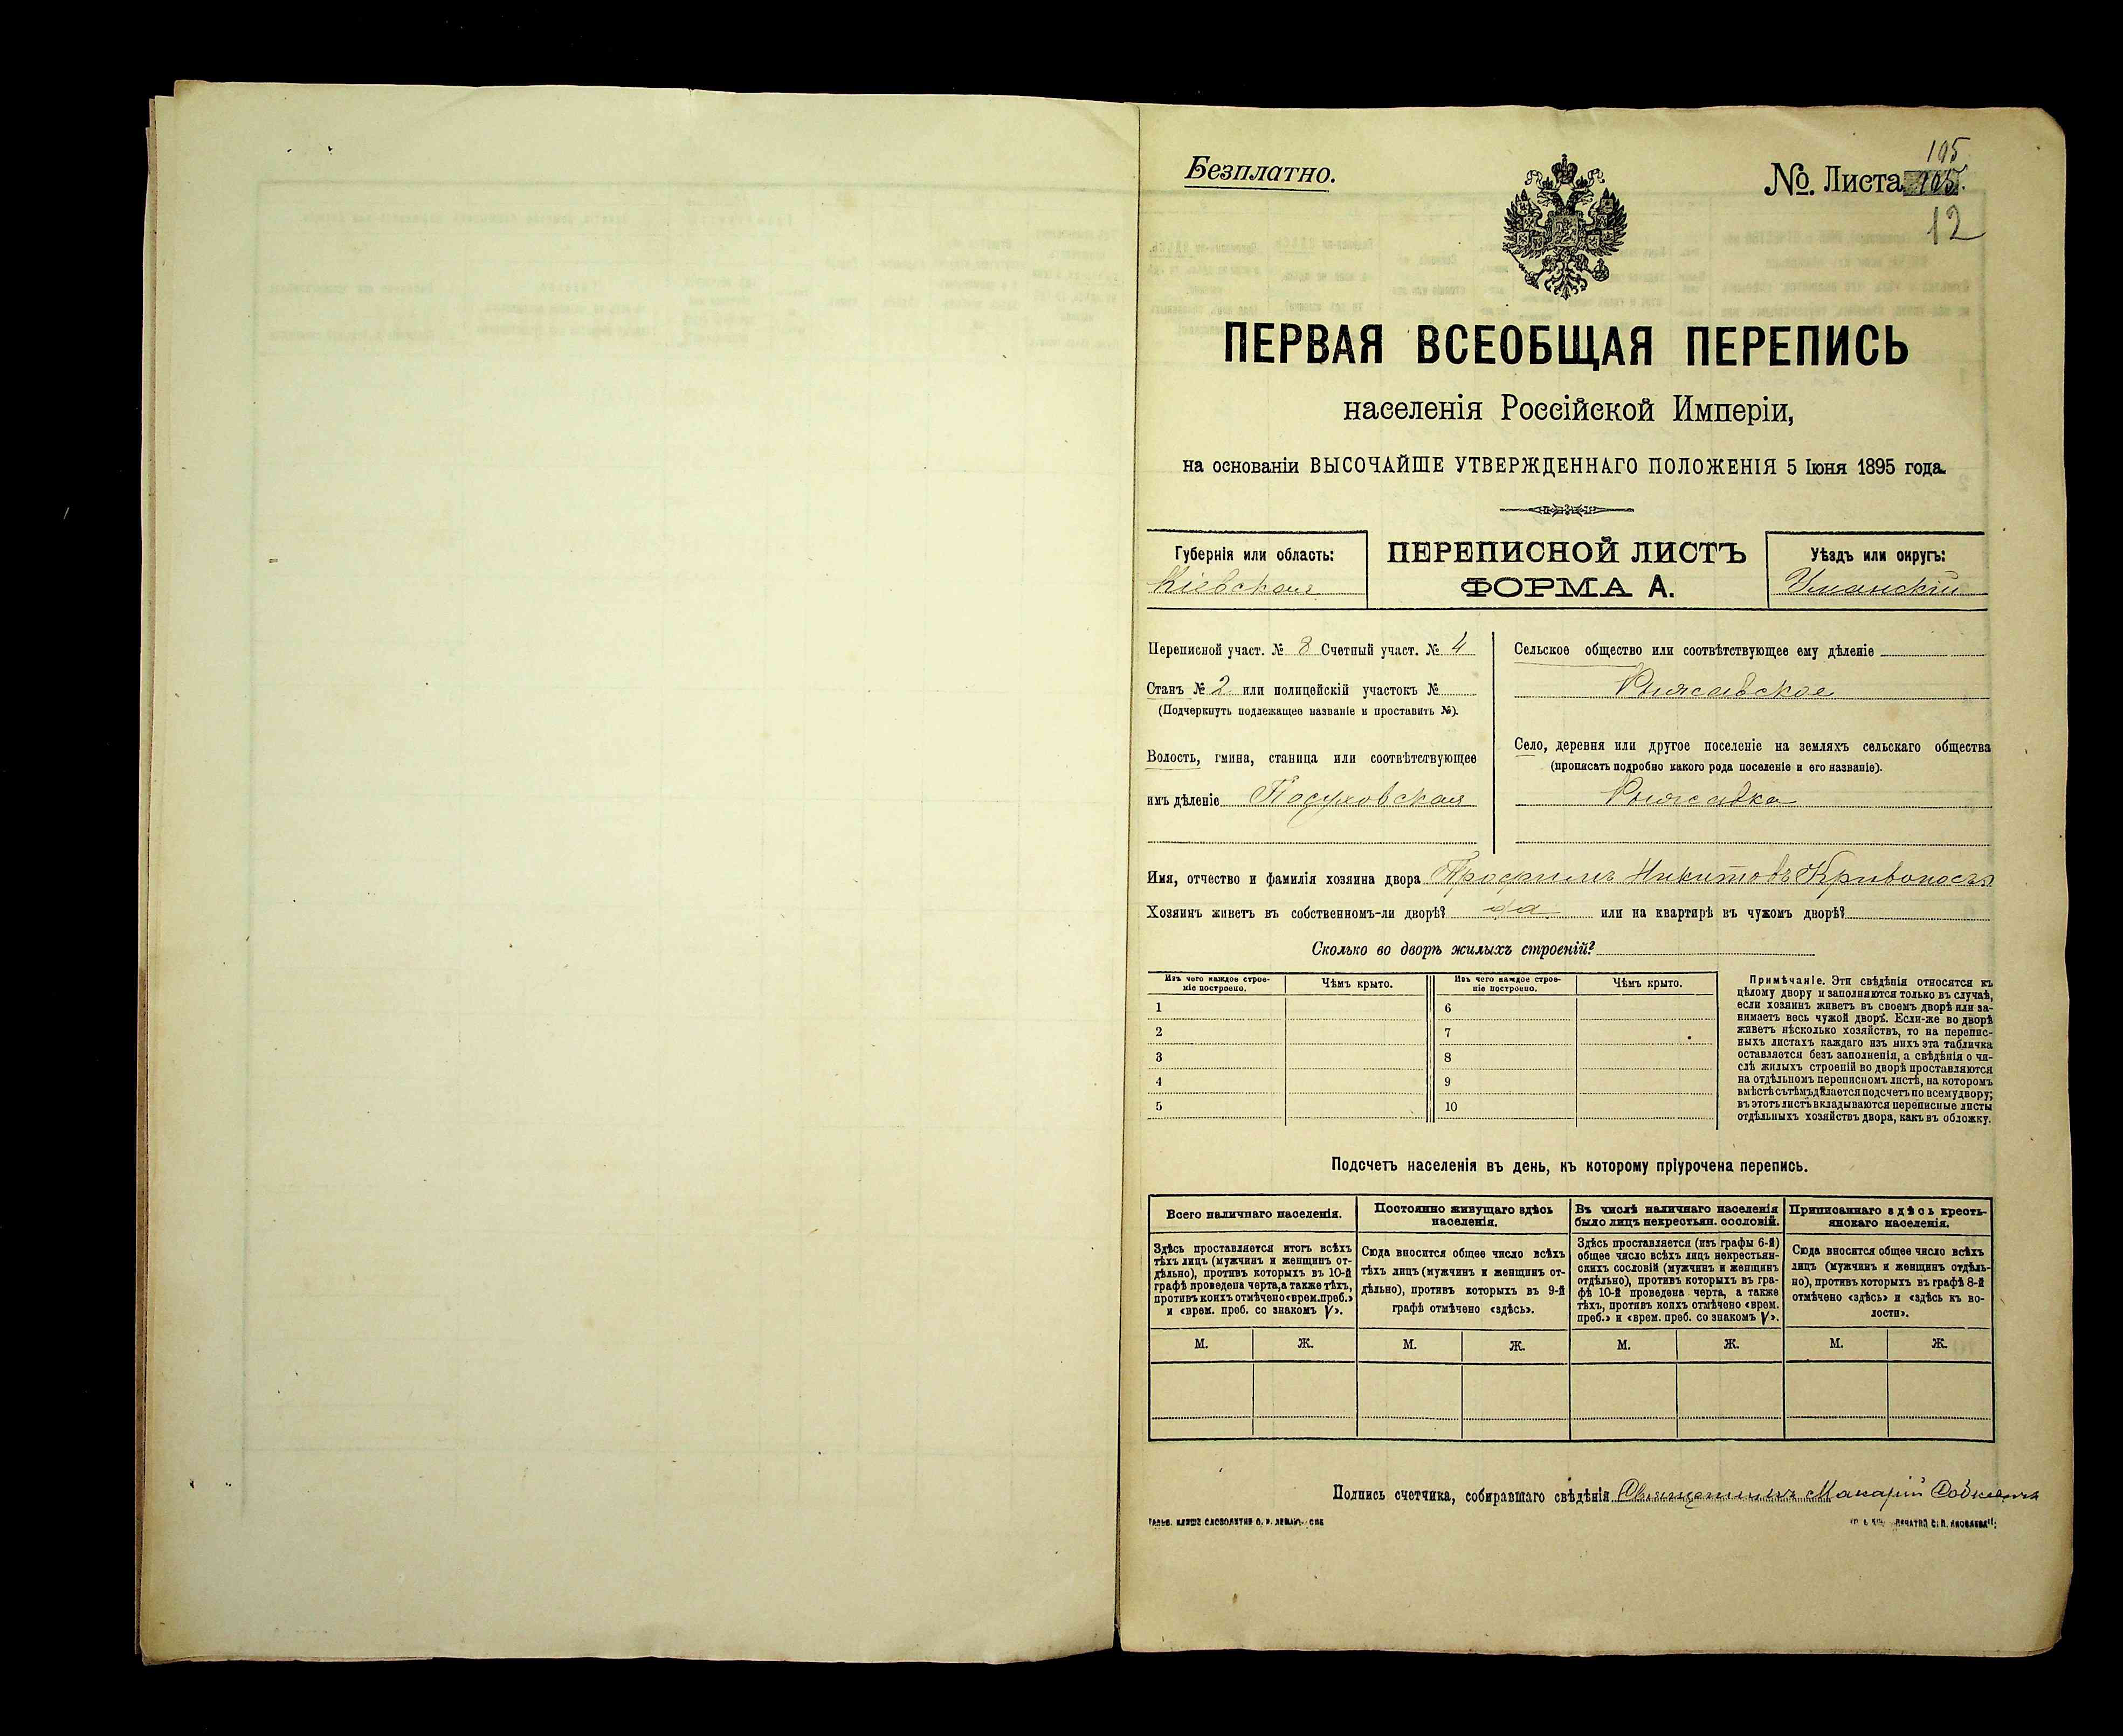 Безплатно.
№ Листа 105.
105
12
ПЕРВАЯ ВСЕОБЩАЯ ПЕРЕПИСЬ
населенія Россійской Имперіи,
на основаніи ВЫСОЧАЙШЕ УТВЕРЖДЕННАГО ПОЛОЖЕНІЯ 5 Іюня 1895 года.
Губернія или область:
Кіевская
ПЕРЕПИСНОЙ ЛИСТЪ
ФОРМА А.
Уѣздъ или округъ:
Уманскій
Переписной участ. № 8 Счетный участ. № 4
Станъ № 2 или полицейскій участокъ №
(Подчеркнуть подлежащее названіе и проставить №).
Волость, гмина, станица или соотвѣтствующее
имъ дѣленіе Посуховская
Сельское общество или соотвѣтствующее ему дѣленіе
Село, деревня или другое поселеніе на земляхъ сельскаго общества
(прописать подробно какого рода поселеніе и его названіе).
Имя, отчество и фамилія хозяина двора Трофимъ Никитовъ Кривоносъ
Хозяинъ живетъ въ собственномъ-ли дворѣ? да или на квартирѣ въ чужомъ дворѣ?
Сколько во дворѣ жилыхъ строеній?
Изъ чего каждое строе-
ніе построено.
Чѣмъ крыто.
Изъ чего каждое строе-
ніе построено.
Чѣмъ крыто.
1
6
2
7
3
8
4
9
5
10
Примѣчаніе. Эти свѣдѣнія относятся къ
цѣлому двору и заполняются только въ случаѣ,
если хозяинъ живетъ въ своемъ дворѣ или за-
нимаетъ весь чужой дворъ. Если-же во дворѣ
живетъ нѣсколько хозяйствъ, то на перепис-
ныхъ листахъ каждаго изъ нихъ эта табличка
оставляется безъ заполненія, а свѣдѣнія о чи-
слѣ жилыхъ строеній во дворѣ проставляются
на отдѣльномъ переписномъ листѣ, на которомъ
вмѣстѣ съ тѣмъ дѣлается подсчетъ по всему двору;
въ этотъ листъ вкладываются переписные листы
отдѣльныхъ хозяйствъ двора, какъ въ обложку.
Подсчетъ населенія въ день, къ которому пріурочена перепись.
Всего наличнаго населенія.
Здѣсь проставляется итогъ всѣхъ
тѣхъ лицъ (мужчинъ и женщинъ от-
дѣльно), противъ которыхъ въ 10-й
графѣ проведена черта, а также тѣхъ,
противъ коихъ отмѣчено «врем. преб.»
и «врем. преб. со знакомъ V».
Постоянно живущаго здѣсь
населенія.
Сюда вносится общее число всѣхъ
тѣхъ лицъ (мужчинъ и женщинъ от-
дѣльно), противъ которыхъ въ 9-й
графѣ отмѣчено «здѣсь».
Въ числѣ наличнаго населенія
было лицъ некрестьян. сословій.
Здѣсь проставляется (изъ графы 6-й)
общее число всѣхъ лицъ некрестьян-
скихъ сословій (мужчинъ и женщинъ
отдѣльно), противъ которыхъ въ гра-
фѣ 10-й проведена черта, а также
тѣхъ, противъ коихъ отмѣчено «врем.
преб.» и «врем. преб. со знакомъ V».
Приписаннаго здѣсь кресть-
янскаго населенія.
Сюда вносится общее число всѣхъ
лицъ (мужчинъ и женщинъ отдѣль-
но), противъ которыхъ въ графѣ 8-й
отмѣчено «здѣсь» и «здѣсь къ во-
лости».
М. Ж. М. Ж. М. Ж. М. Ж.
Подпись счетчика, собиравшаго свѣдѣнія Священникъ Макарій